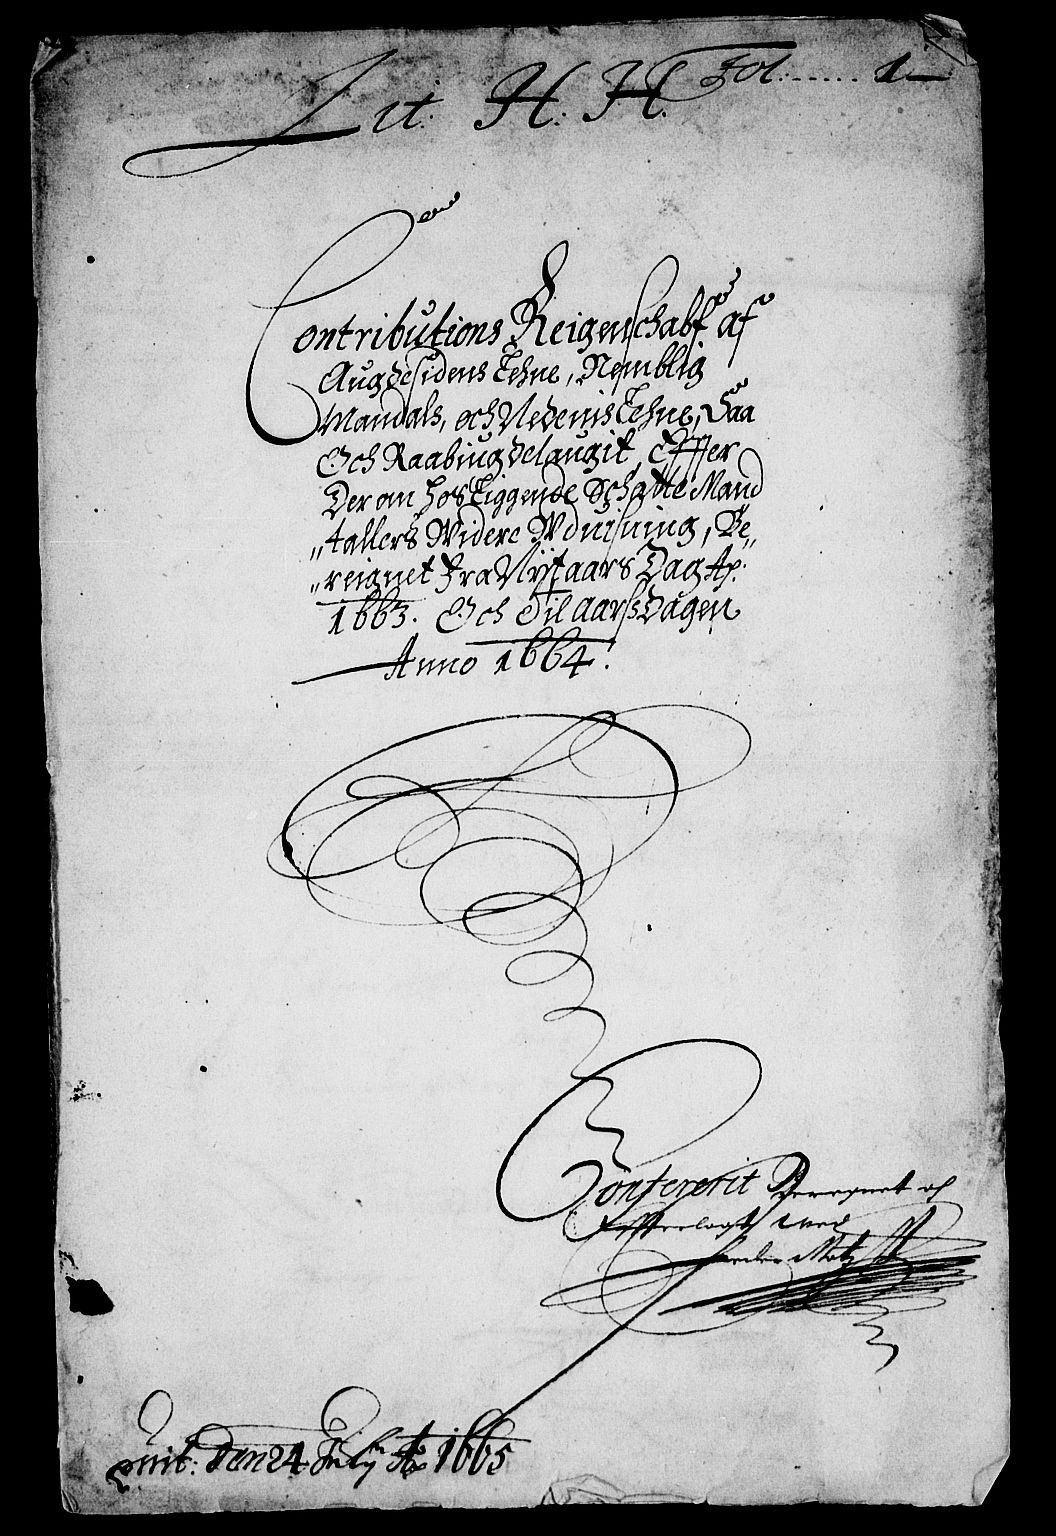 Lit: H: H. Fol: ...... 1
Contributions Reigenschabf af
Augdesidens Lehne, Nemblig
Mandals, och Nedenis Lehne, Saa
Och Raabiugdelaugit, Effter
Der om hos Liggende Schatte Mand
"tallers Widere Wduisning, Be"
"reignet fra Nÿtaars Dag Ao:
1663. Och Til aarssdagen
Anno 1664.
Confererit Beregnet og
Effterlagt med
Peder Motz
quit: den 24 July Ao 1665